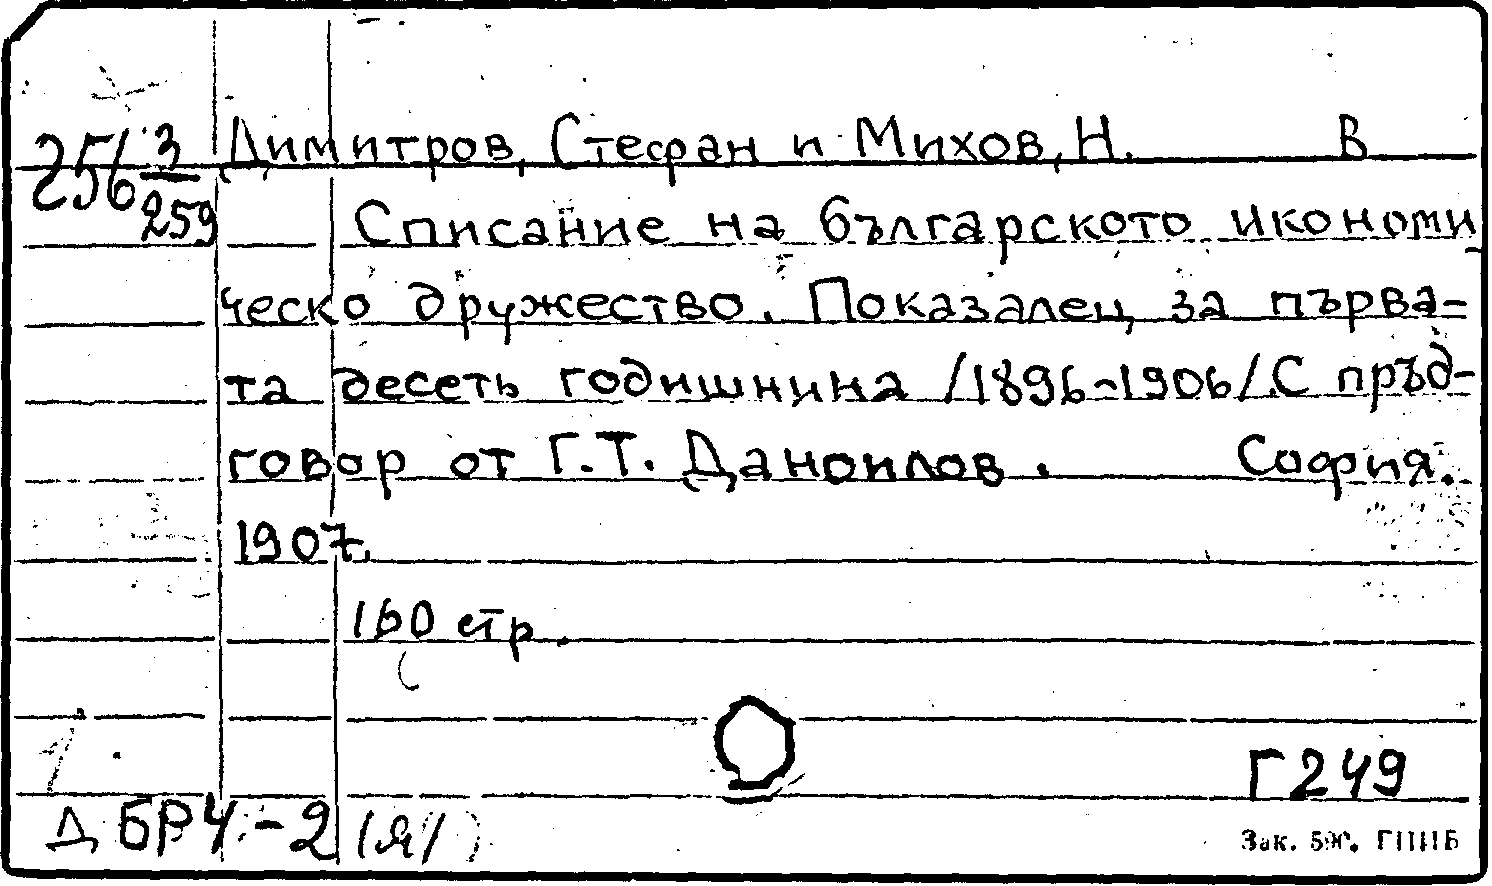 256 3/259 Димитров, Стефан и Михов, Н. В
Списание на българското икономи
ческо дружество. Показалец за първа-
та десеть годишнина /1896-1906/. С пръд-
говор от Г. Т. Данаилов. София.
1907.
160 стр.
Г249
Д БРЧ-2 /Я/
Зак. 590. ГППБ